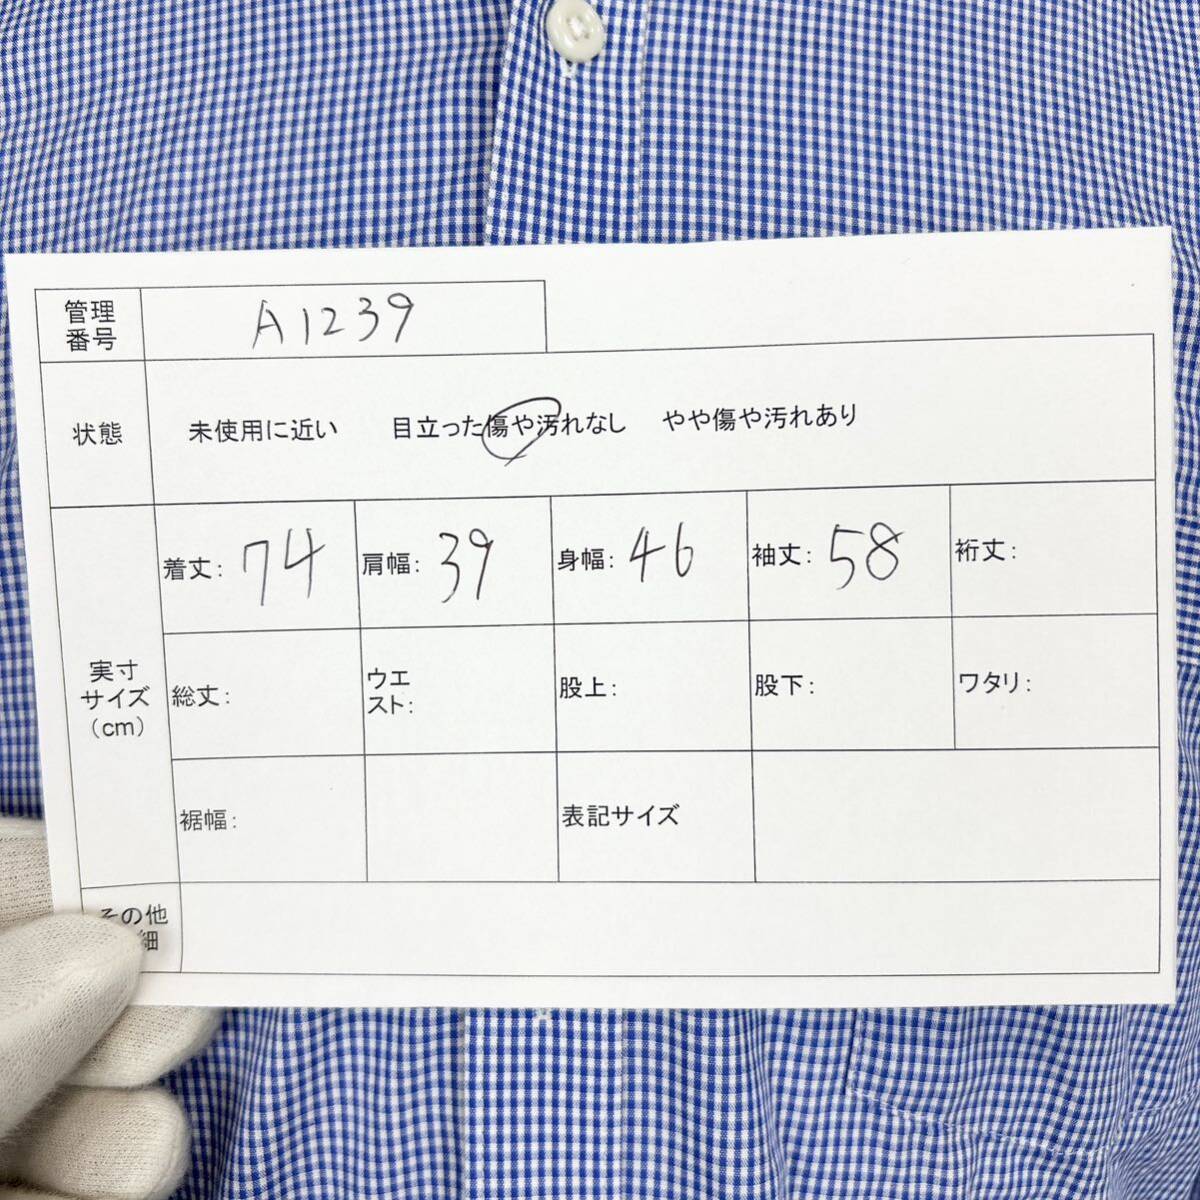 管理
番号
A1239
状態
未使用に近い 目立った傷や汚れなし やや傷や汚れあり
実寸
サイズ
(cm)
着丈: 74
肩幅: 39
身幅: 46
袖丈: 58
裄丈:
総丈:
ウエ
スト:
股上:
股下:
ワタリ:
裾幅:
表記サイズ
その他
細